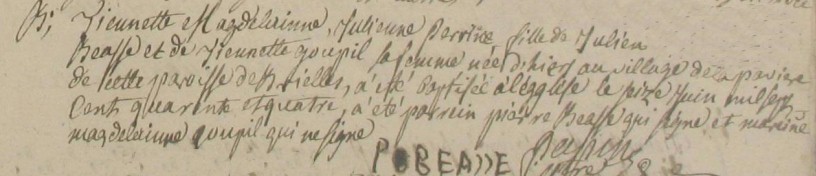 B; Viennette Magdelainne, Julienne Perrine fille de Julien
Beasse et de Viennette goupil sa femme née D'hier au village de la
de cette paroisse de Brielles, a été baptisée a l'église le seize Juin mil sept
Cent quarante et quatre, a été parrein pierre Beasse qui signe et mareine
magdelainne goupil qui ne signe
P BEASSE